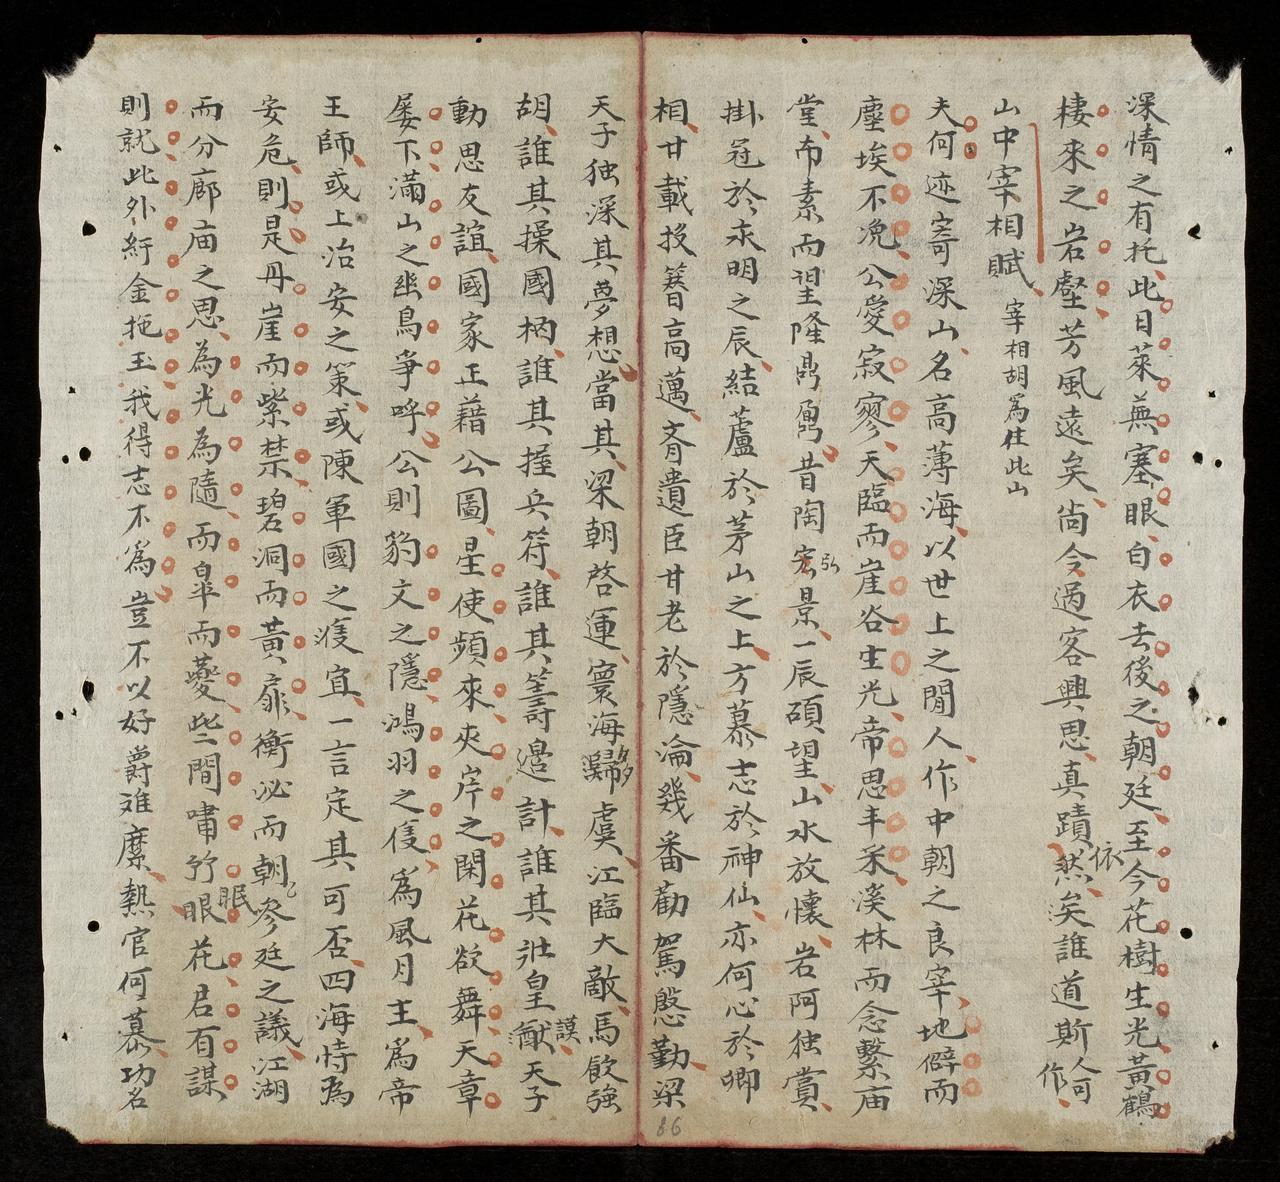 深情之有托此日萊蕪塞眼白衣去後之朝廷至今花樹生光黃鶴
棲來之岩壑芳風遠矣尚令過客興思真蹟依然矣誰道斯人可作
山中宰相賦 宰相胡為住此山
夫何迹寄深山名高薄海以世上之閒人作中朝之良宰地僻而
塵埃不浼公愛寂寥天臨而崖谷生光帝思丰采溪林而念繫庙
堂布素而望隆鼎鼐昔陶宏弘景一辰碩望山水放懷岩阿独賞
掛冠於永明之辰結蘆於茅山之上方慕志於神仙亦何心於卿
相甘載投簪高邁齊遺臣甘老於隱淪幾番勸駕慇勤梁
天子独深其夢想當其梁朝啓運寰海歸虞江臨大敵馬飲強
胡誰其操國柄誰其握兵符誰其籌邊計誰其壯皇猷謨天子
動思友誼國家正藉公圖星使頻來夾岸之閑花欲舞天章
屡下滿山之幽鳥爭呼公則豹文之隱鴻羽之隻為風月主為帝
王師或上治安之策或陳軍國之宜一言定其可否四海恃為
安危則是丹崖而紫禁碧洞而黃扉衡泌而朝參廷之議江湖
而分廊庙之思為光為隨而皐而夔些間嘯竹眠花君有謀
則就此外紆金拖玉我得志不為豈不以好爵难縻熱官何慕功名
86